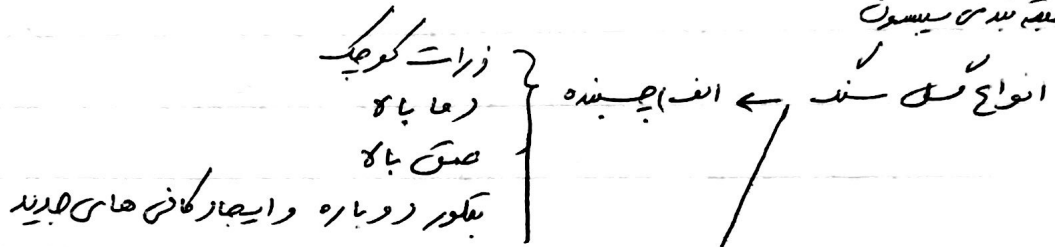 بندی سیبسون
انواع گسل سنگ ← الف) چسبنده
ذرات کوچک
دما بالا
عمق بالا
بلور دوباره و ایجاد کانی های جدید